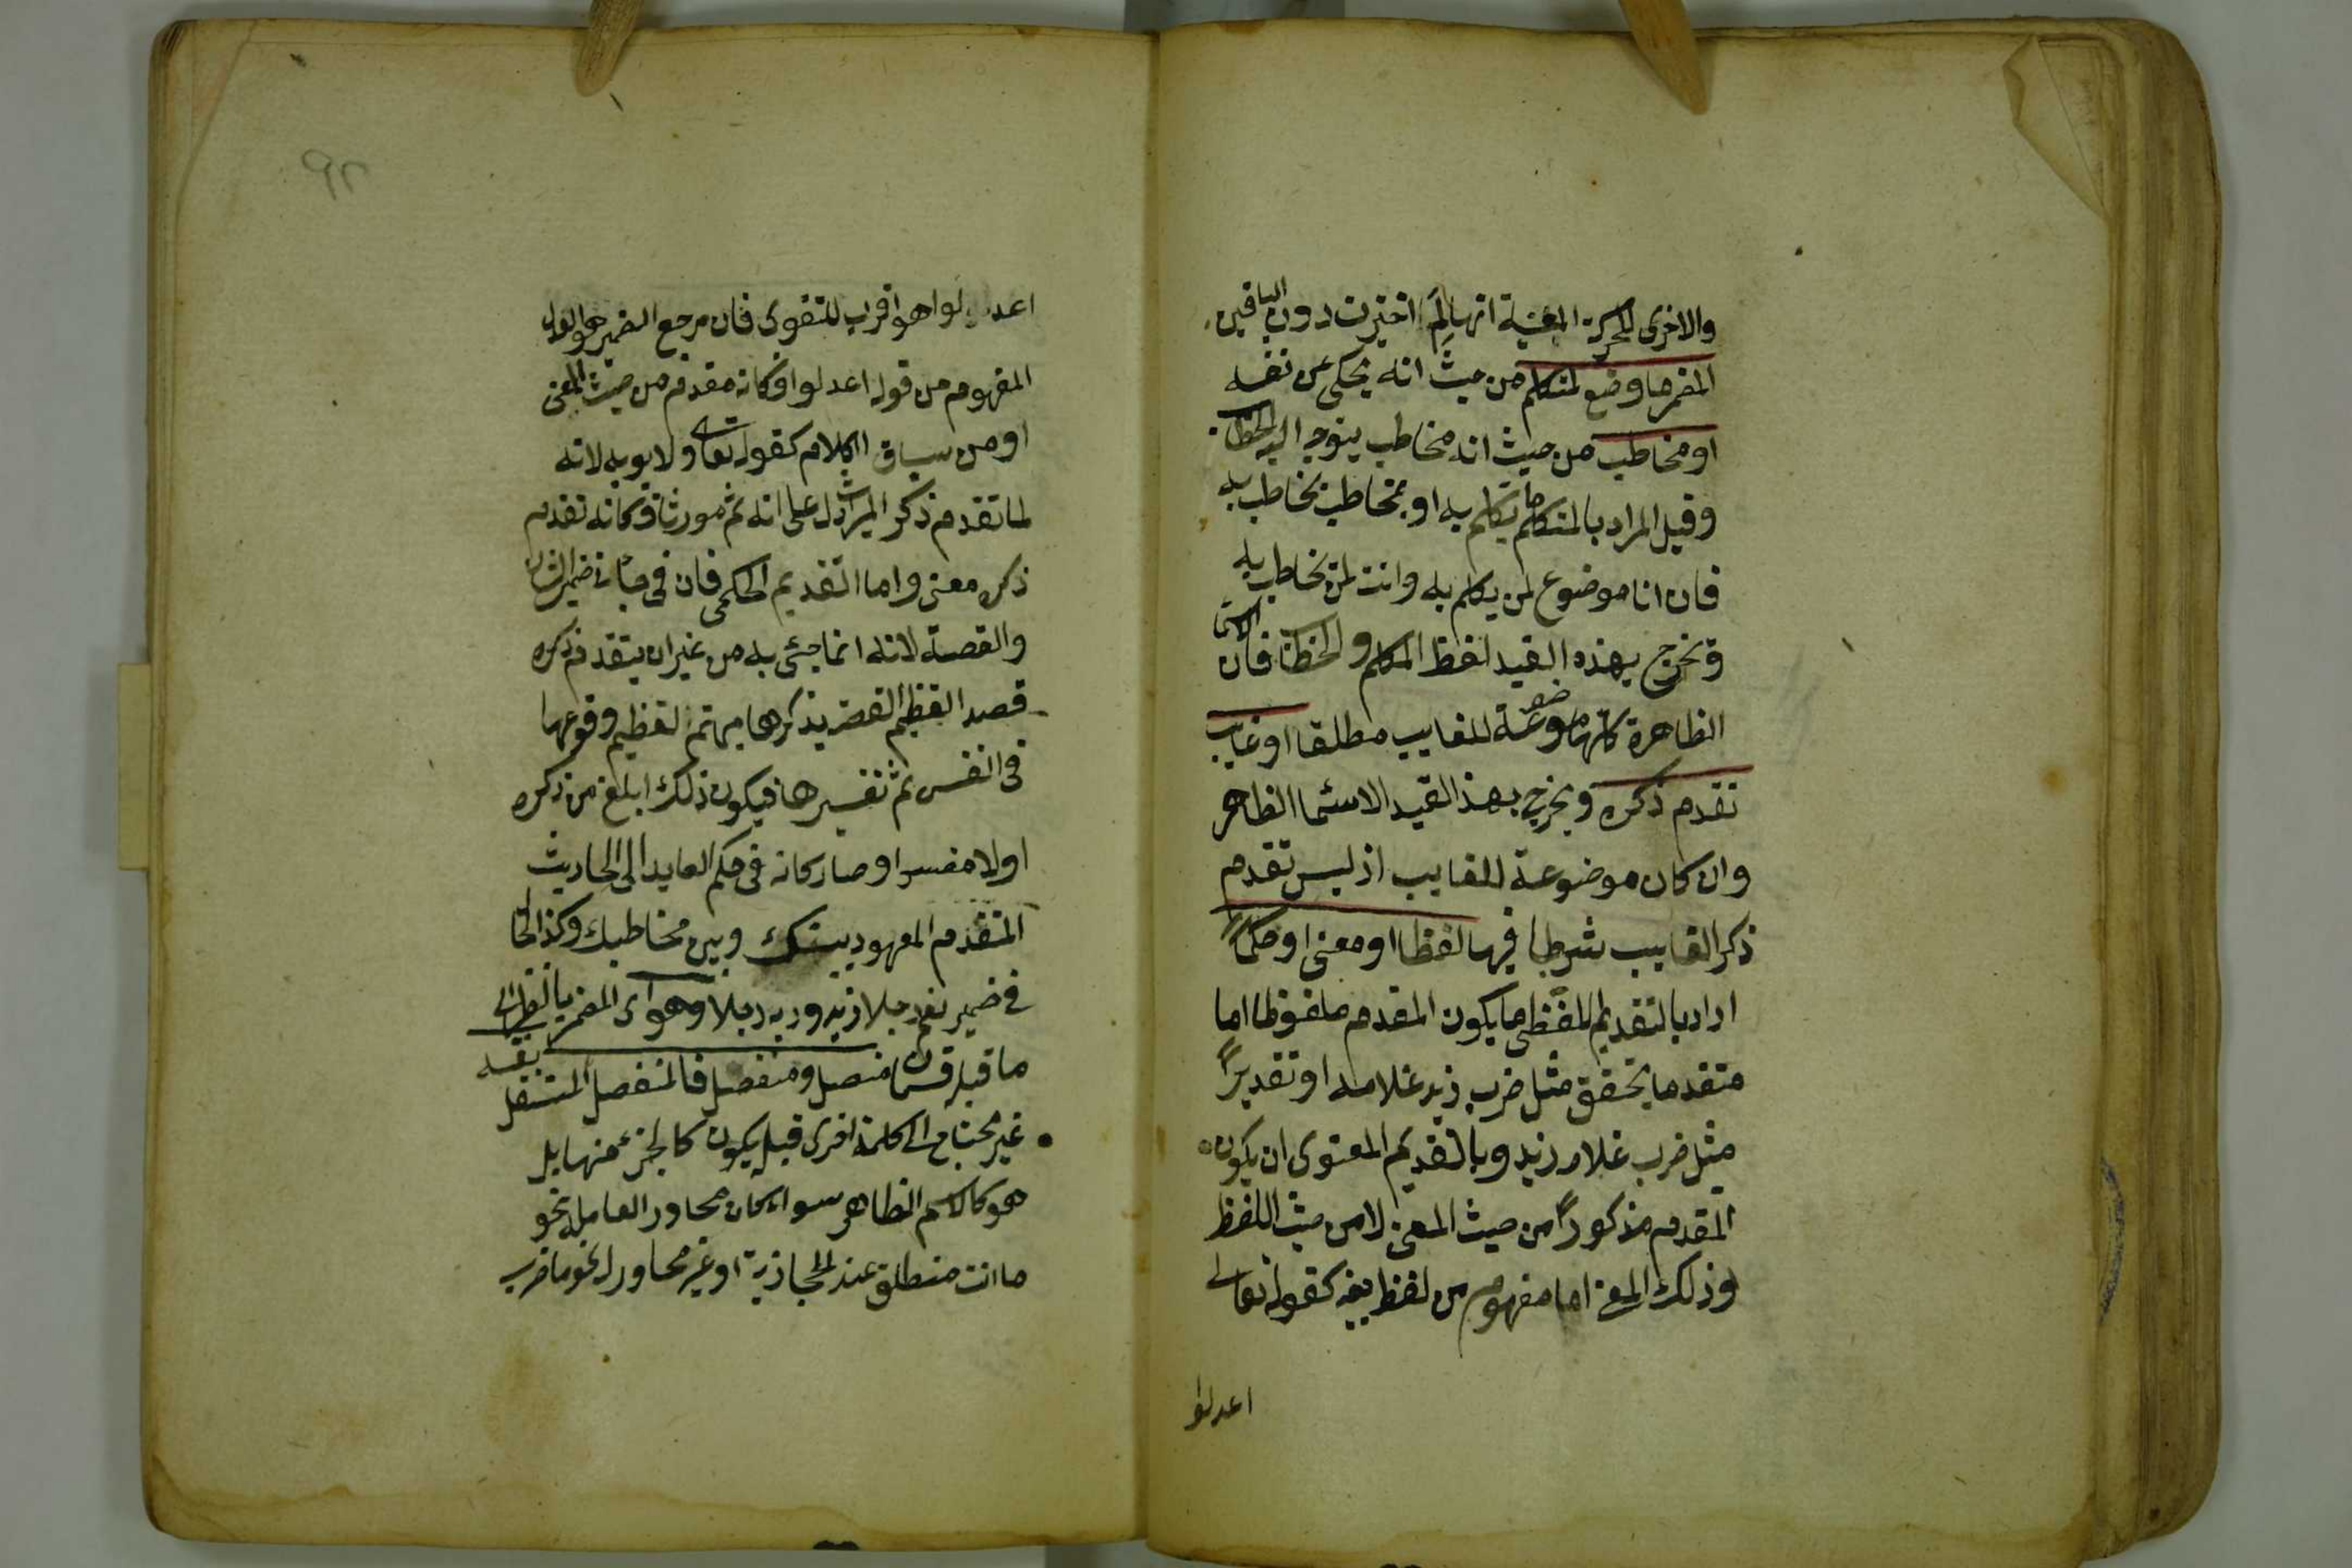 والاخرى للحركة المعينة انها لم اختيرت دون الباقين
المضمر ما وضع لمتكلم من حيث انه يحكى عن نفسه
او مخاطب من حيث انه مخاطب يتوجه اليه الخطاب
وقيل المراد بالمتكلم ما يتكلم به او بمخاطب يخاطب به
فان انا موضوع لمن يتكلم به وانت لمن يخاطب به
ويخرج بهذه القيد لفظ المتكلم والمخاطب فان الاسماء
الظاهرة كلها موضوعة للغايب مطلقا او غايب
تقدم ذكره ويخرج بهذ القيد الاسما الظاهر
وان كان موضوعة للغايب اذ ليس تقدم
ذكر الغايب شرطا فيها لفظا او معنى او حكما
اراد بالتقديم اللفظى ما يكون المقدم ملفوظا اما
متقدما بتحقق مثل ضرب زيد غلامه او تقديرا
مثل ضرب غلامه زيد وبالتقديم المعنوى ان يكون
المقدم مذكورا من حيث المعنى لا من حيث اللفظ
وذلك المعنى اما مفهوم من لفظ بعينه كقوله تعالى
اعدلوا
٩٢
اعدلوا هو اقرب للتقوى فان مرجع الضمير هو العدل
المفهوم من قوله اعدلوا فكانه مقدم من حيث المعنى
او من سياق الكلام كقوله تعالى ولابويه لانه
لما تقدم ذكر الميراث دل على انه ثم مورثا فكانه تقدم
ذكره معنى واما التقديم الحكمى فان فى جاء فى ضمير الشان
والقصة لانه انما جئ به من غير ان يتقدم ذكره
قصد التعظيم القصة بذكرها مبهمة لتعظيم وقوعها
فى النفس ثم تفسيرها فيكون ذلك ابلغ من ذكره
اولا مفسرا وصار كانه فى حكم العايد الى الحديث
المتقدم المعهود بينك وبين مخاطبك وكذا الحال
فى ضمير نعم رجلا زيد وربه رجلا وهو اى المضمر بالنظر الى
ما قبله قسمان متصل ومنفصل فالمنفصل المستقل بنفسه
غير محتاج الى كلمة اخرى قبله يكون كالجزء منها بل
هو كالاسم الظاهر سواء كان مجاور العامله نحو
ما انت منطلق عند الحجازية او غير مجاور له نحو ما ضرب